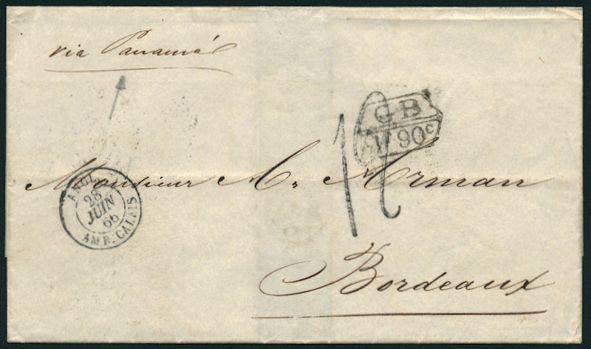 via Panamá
GB
1F 90c
Monsieur A. Arman
12
ANGL.
28
JUIN
66
AMB. CALAIS
Bordeaux